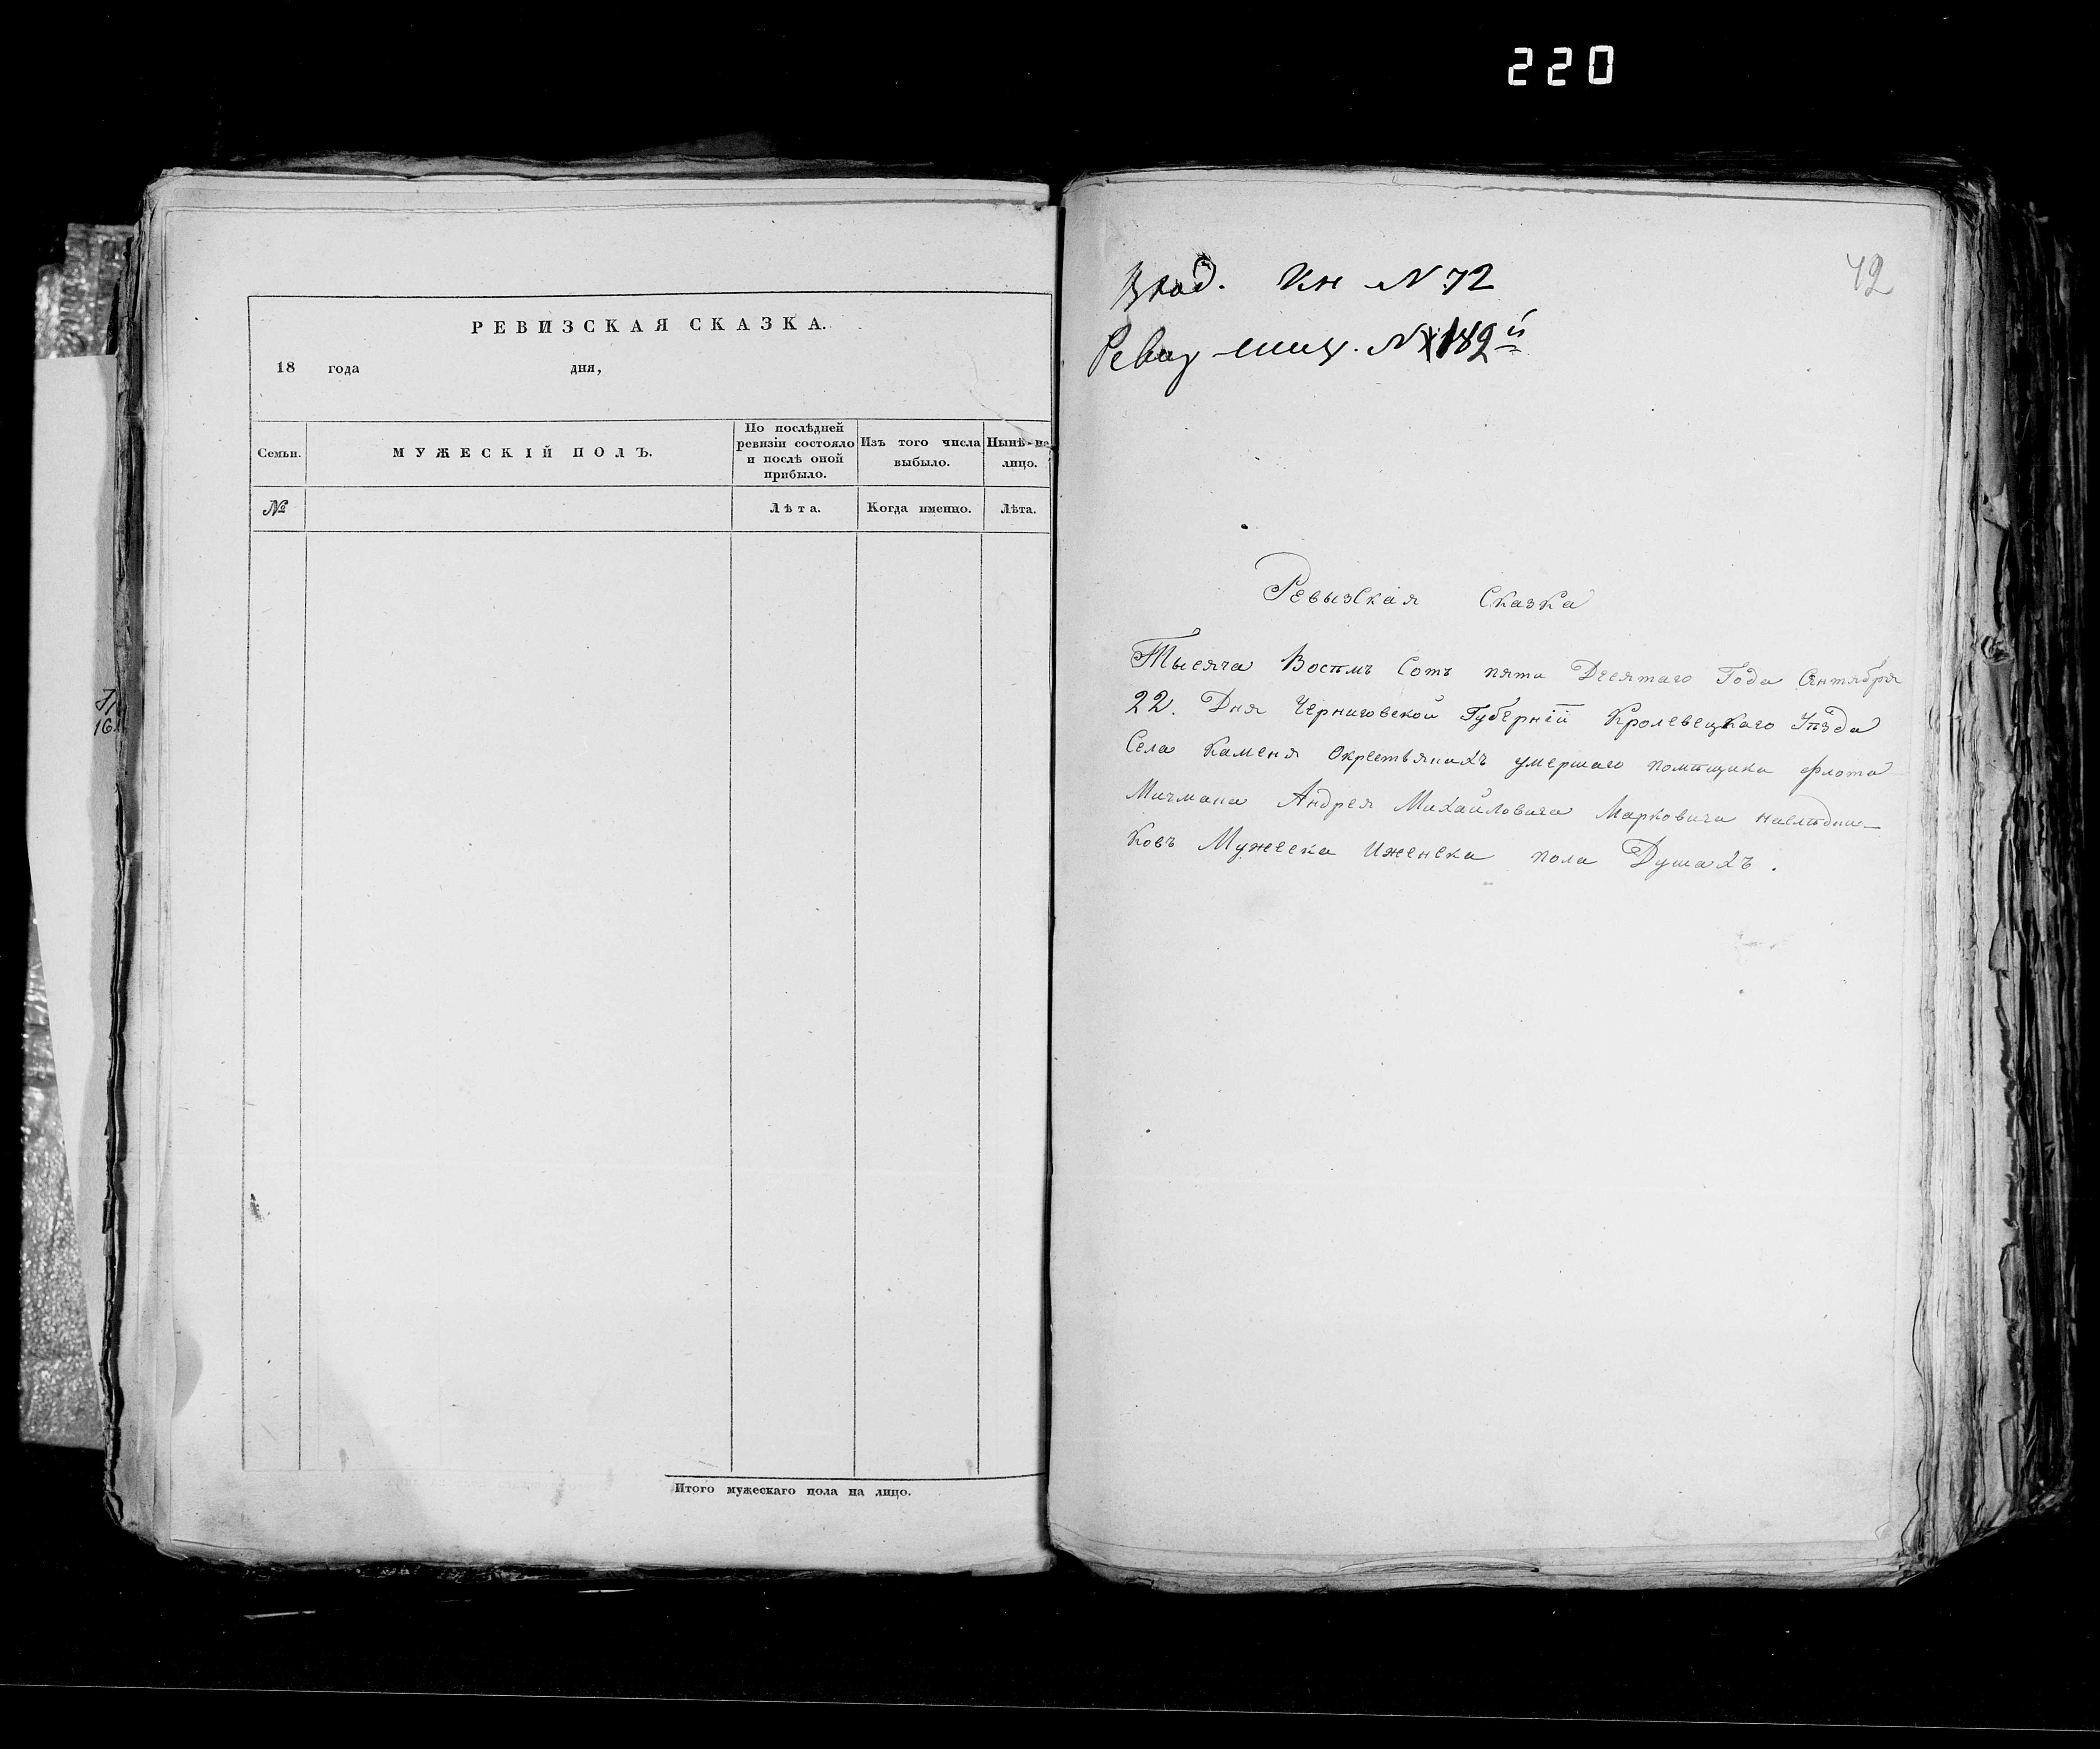 220
РЕВИЗСКАЯ СКАЗКА.
18 года дня,
Семьи.
МУЖЕСКІЙ ПОЛЪ.
По послѣдней
ревизіи состояло
и послѣ оной
прибыло.
Изъ того числа
выбыло.
Нынѣ на
лицо.
№
Лѣта.
Когда именно.
Лѣта.
Итого мужескаго пола на лицо.
Вход. Кн N 72
42
Ревиз N 182й
Ревызская Сказка
Тысяча Восѣмъ Сотъ пяти Десятаго Года Сентября
22. Дня Черниговской Губерніи Кролевецкаго Уѣзда
Села Каменя Окрестьянахъ умершаго помѣщика флота
Мичмана Андрея Михайловича Марковича наслѣдни–
ковъ Мужеска Иженска пола Душахъ.